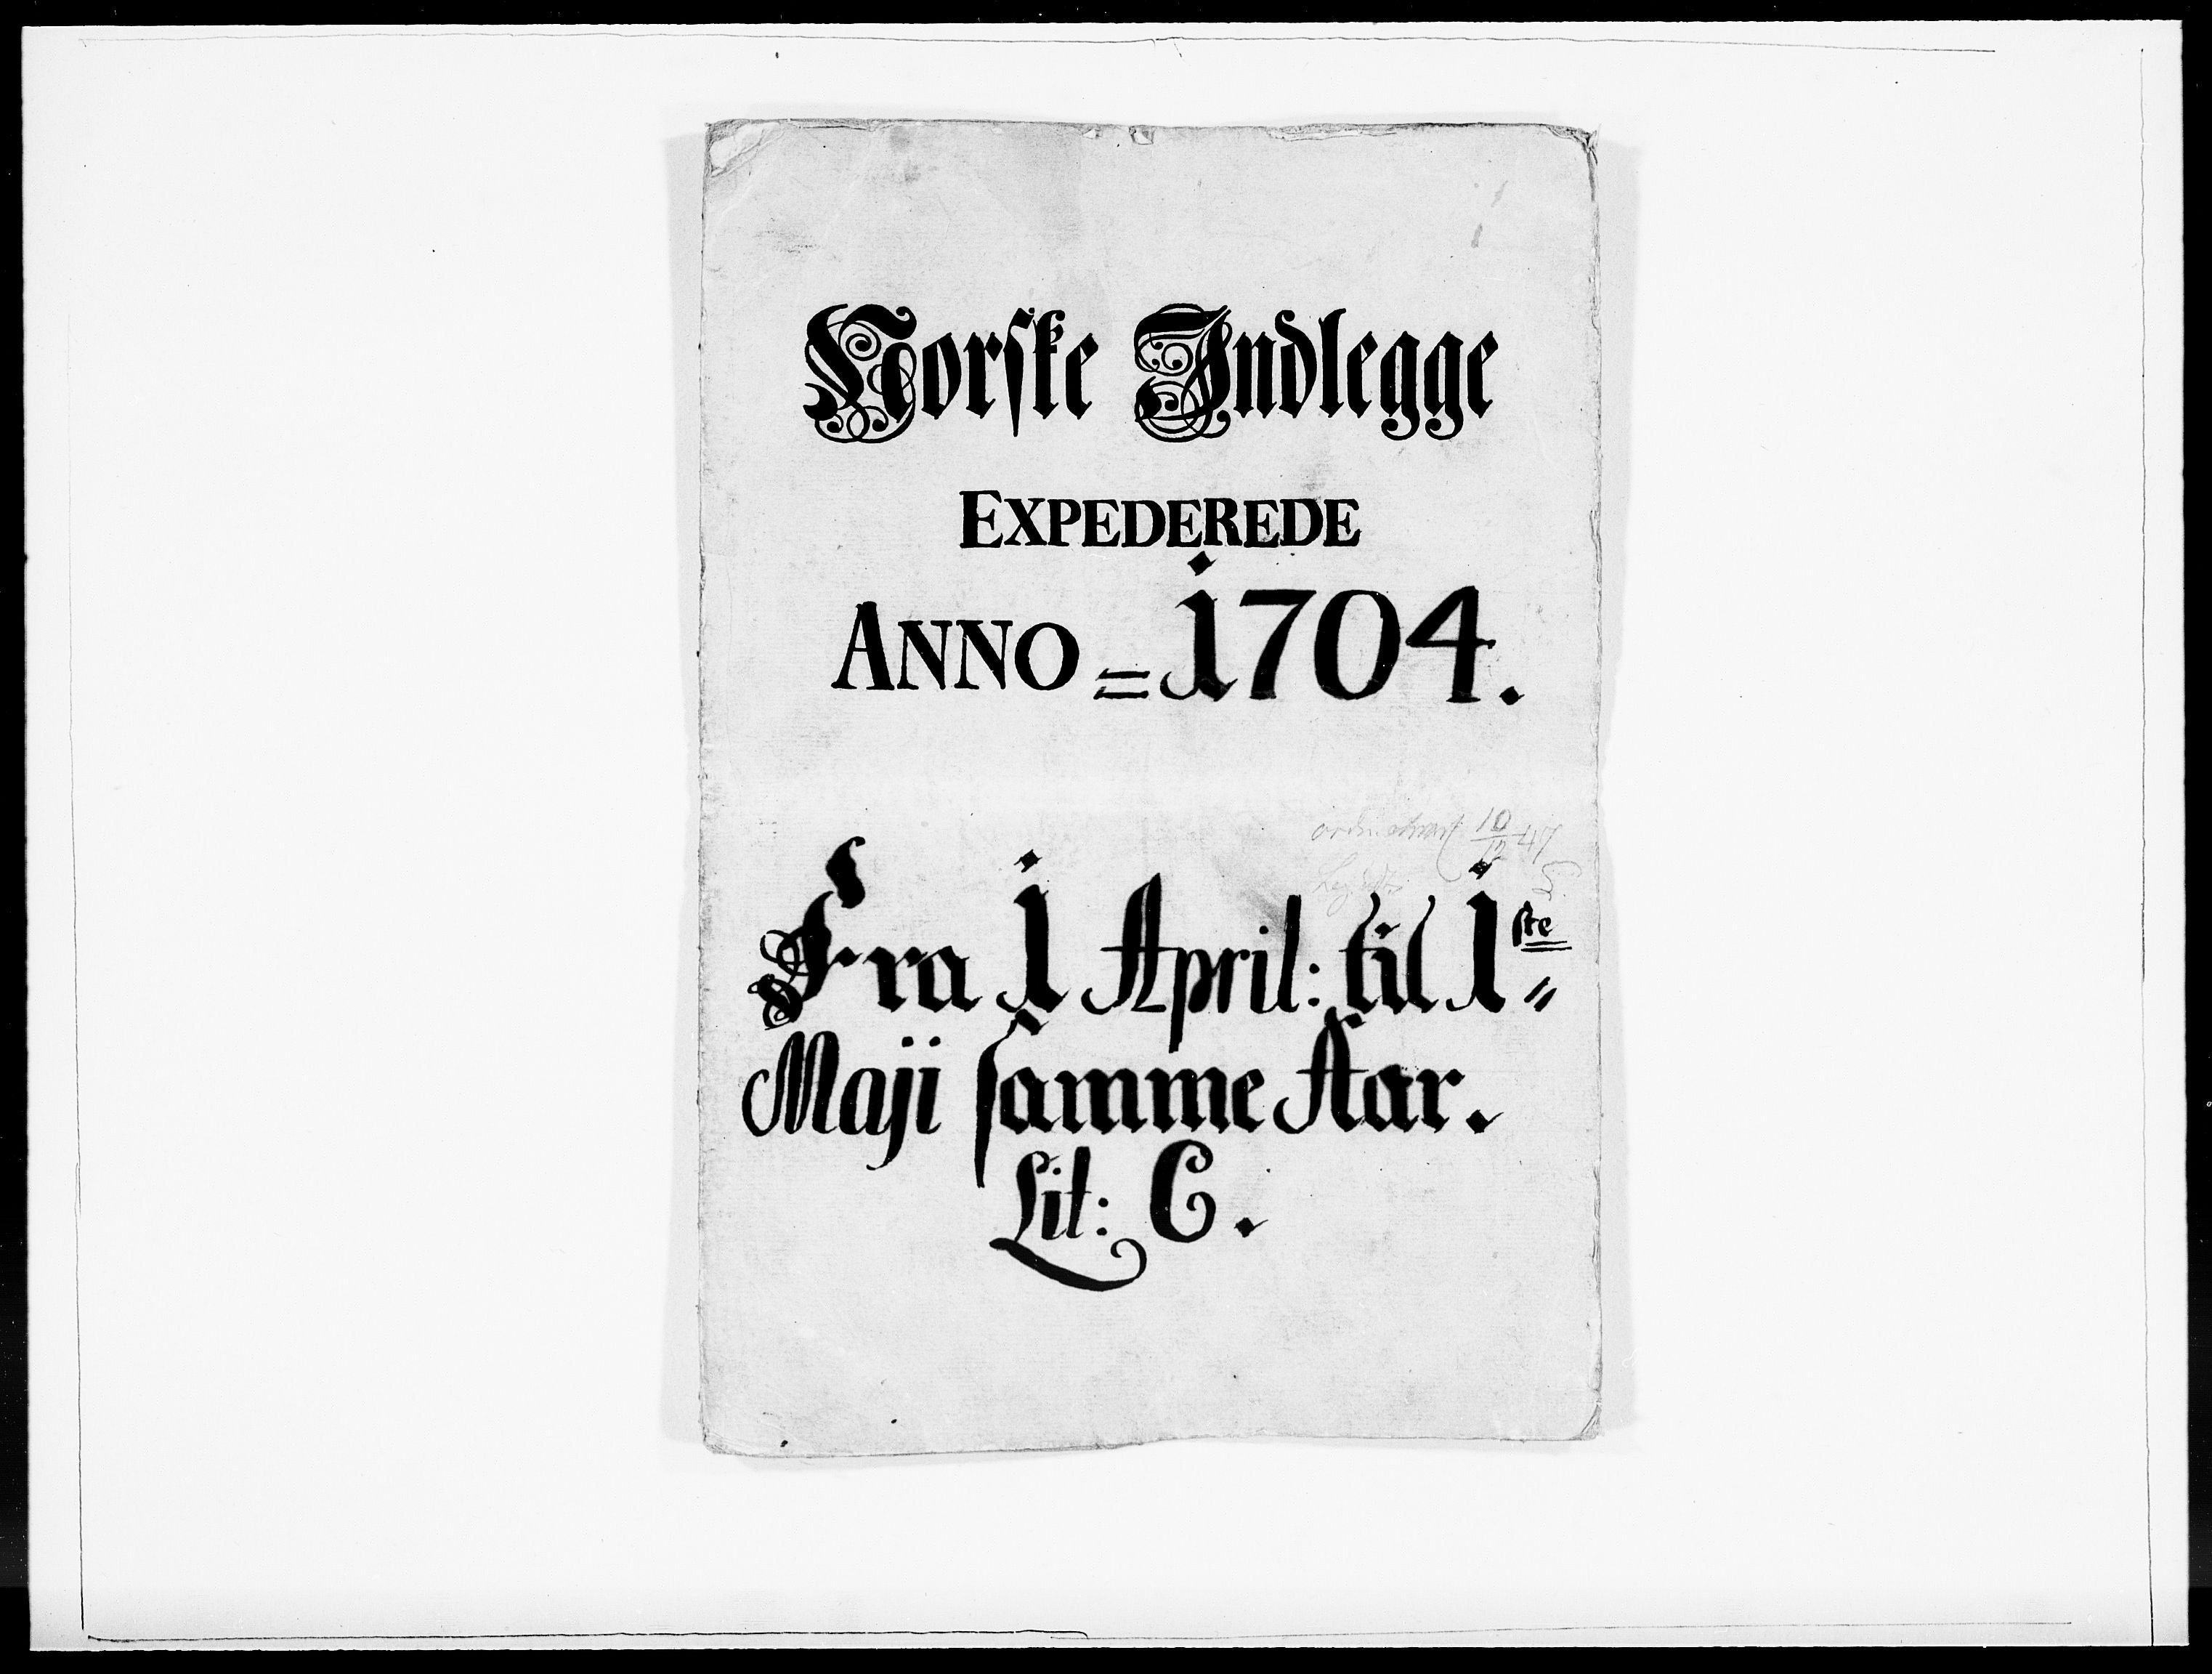 Norske Indlegge
EXPEDEREDE
ANNO = 1704.
10/12 47
Fra 1 April: til 1ste
Maji samme Aar.
Lit: C.